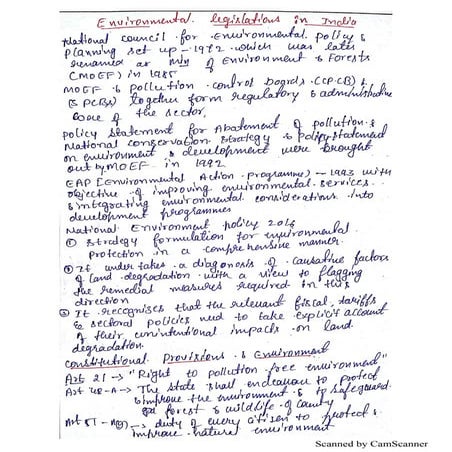 Environmental legislations in India
National council for environmental policy &
planning set up - 1972 which was later
renamed as Min of Environment & Forests
(MOEF) in 1985
MOEF & pollution control boards (CPCB) &
(SPCBs) together form regulatory & administrative
core of the sector.
policy statement for Abatement of pollution &
National conservation strategy & policy statement
on environment & development were brought
out by MOEF in 1992
EAP [Environmental Action Programme) - 1993 with
objective of improving environmental services
& integrating environmental considerations into
development programmes
National Environment policy 2016
① strategy formulation for environmental
protection in a comprehensive manner
② It undertakes a diagnosis of causative factors
of land degradation with a view to flagging
the remedial measures required in this
direction
③ It recognises that the relevant fiscal, tariffs
& sectoral policies need to take explicit account
of their unintentional impacts on land
degradation.
constitutional Provisions & Environment
Art 21 -> "Right to pollution free environment"
Art 48-A -> The state shall endeavour to protect
& improve the environment & to safeguard
forest & wildlife of county
Art 51-A(g) -> duty of every citizen to protect &
improve natural environment
Scanned by CamScanner